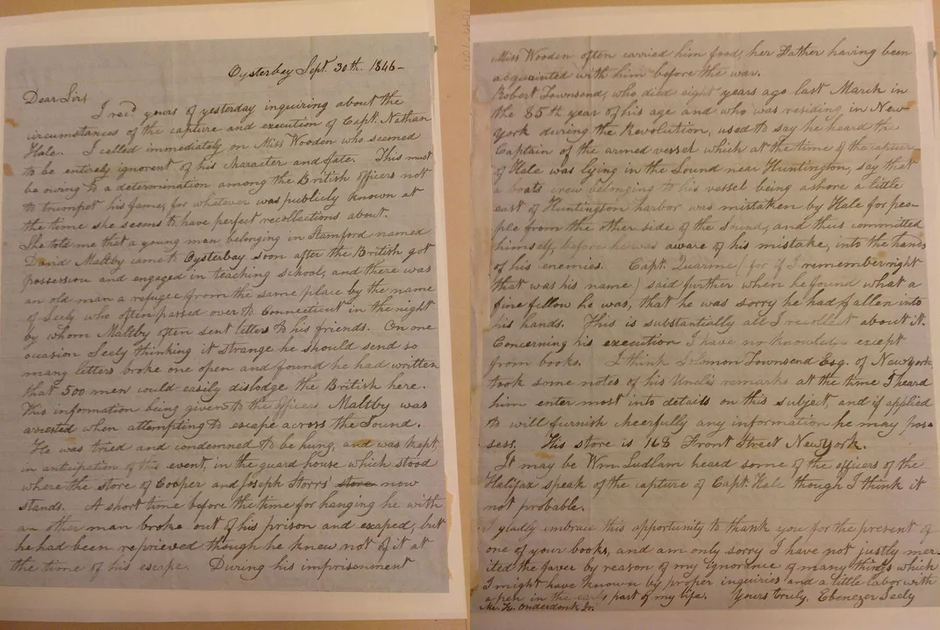 Oysterbay Sept. 30th. 1846-
Dear Sir,
I recd yours of yesterday inquiring about the
circumstances of the capture and execution of Capt. Nathan
Hale. I called immediately on Miss Wooden who seemed
to be entirely ignorent of his character and fate. This must
be owing to a determination among the British officers not
to trumpet his fame, for whatever was publicly known at
the time she seems to have perfect recollections about.
She told me that a young man belonging in Stamford named
David Maltby came to Oysterbay soon after the British got
possession and engaged in teaching school, and there was
an old man a refugee from the same place by the name
of Seely who often passed over to Connecticut in the night
by whom Maltby often sent letters to his friends. On one
occasion Seely thinking it strange he should send so
many letters broke one open and found he had written
that 500 men could easily dislodge the British here.
This information being given to the officers Maltby was
arrested when attempting to escape across the Sound.
He was tried and condemned to be hung, and was kept,
in anticipation of this event, in the guard house which stood
where the store of Cooper and Joseph Storrs' store now
stands. A short time before the time for hanging he with
an other man broke out of his prison and exaped; but
he had been reprieved though he knew not of it at
the time of his escape. During his imprisonment
Miss Wooden often carried him food, her Father having been
acquainted with him before the war.
Robert Townsend, who died eight years ago last March in
the 85th year of his age and who was residing in New
York during the Revolution, used to say he heard the
Captain of the armed vessel which at the time of the capture
of Hale was lying in the Sound near Huntington, say that
a boats crew belonging to his vessel being ashore a little
east of Huntington harbor was mistaken by Hale for peo-
ple from the other side of the Sound, and thus committed
himself, before he was aware of his mistake, into the hands
of his enemies. Capt. Quarme (for if I remember right
that was his name) said further when he found what a
fine fellow he was, that he was sorry he had fallen into
his hands. This is substantially all I recollect about it.
Concerning his execution I have no knowledge except
from books. I think Solomon Townsend Esq. of New York
took some notes of his Uncle's remarks at the time I heard
him enter most into details on this subject, and if applied
to will furnish cheerfully any information he may pos-
sess. His store is 168 Front Street New York.
It may be Wm Ludlam heard some of the officers of the
Halifax speak of the capture of Capt. Hale though I think it
not probable.
I gladly embrace this opportunity to thank you for the present of
one of your books, and am only sorry I have not justly mer-
ited the favor by reason of my ignorance of many things which
I might have known by proper inquiries and a little labor with
a pen in the early part of my life. Yours truly, Ebenezer Seely
Mr. H. Onderdonk Jr.